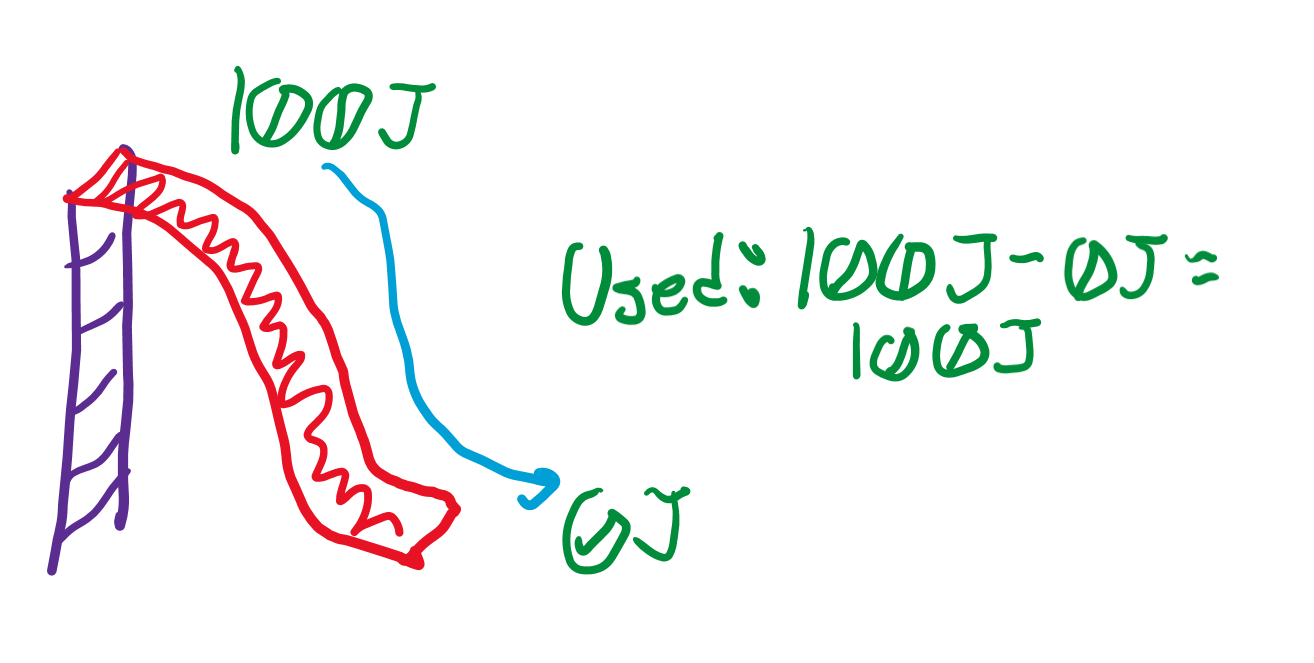 100J
Used: 100J - 0J =
100J
0J